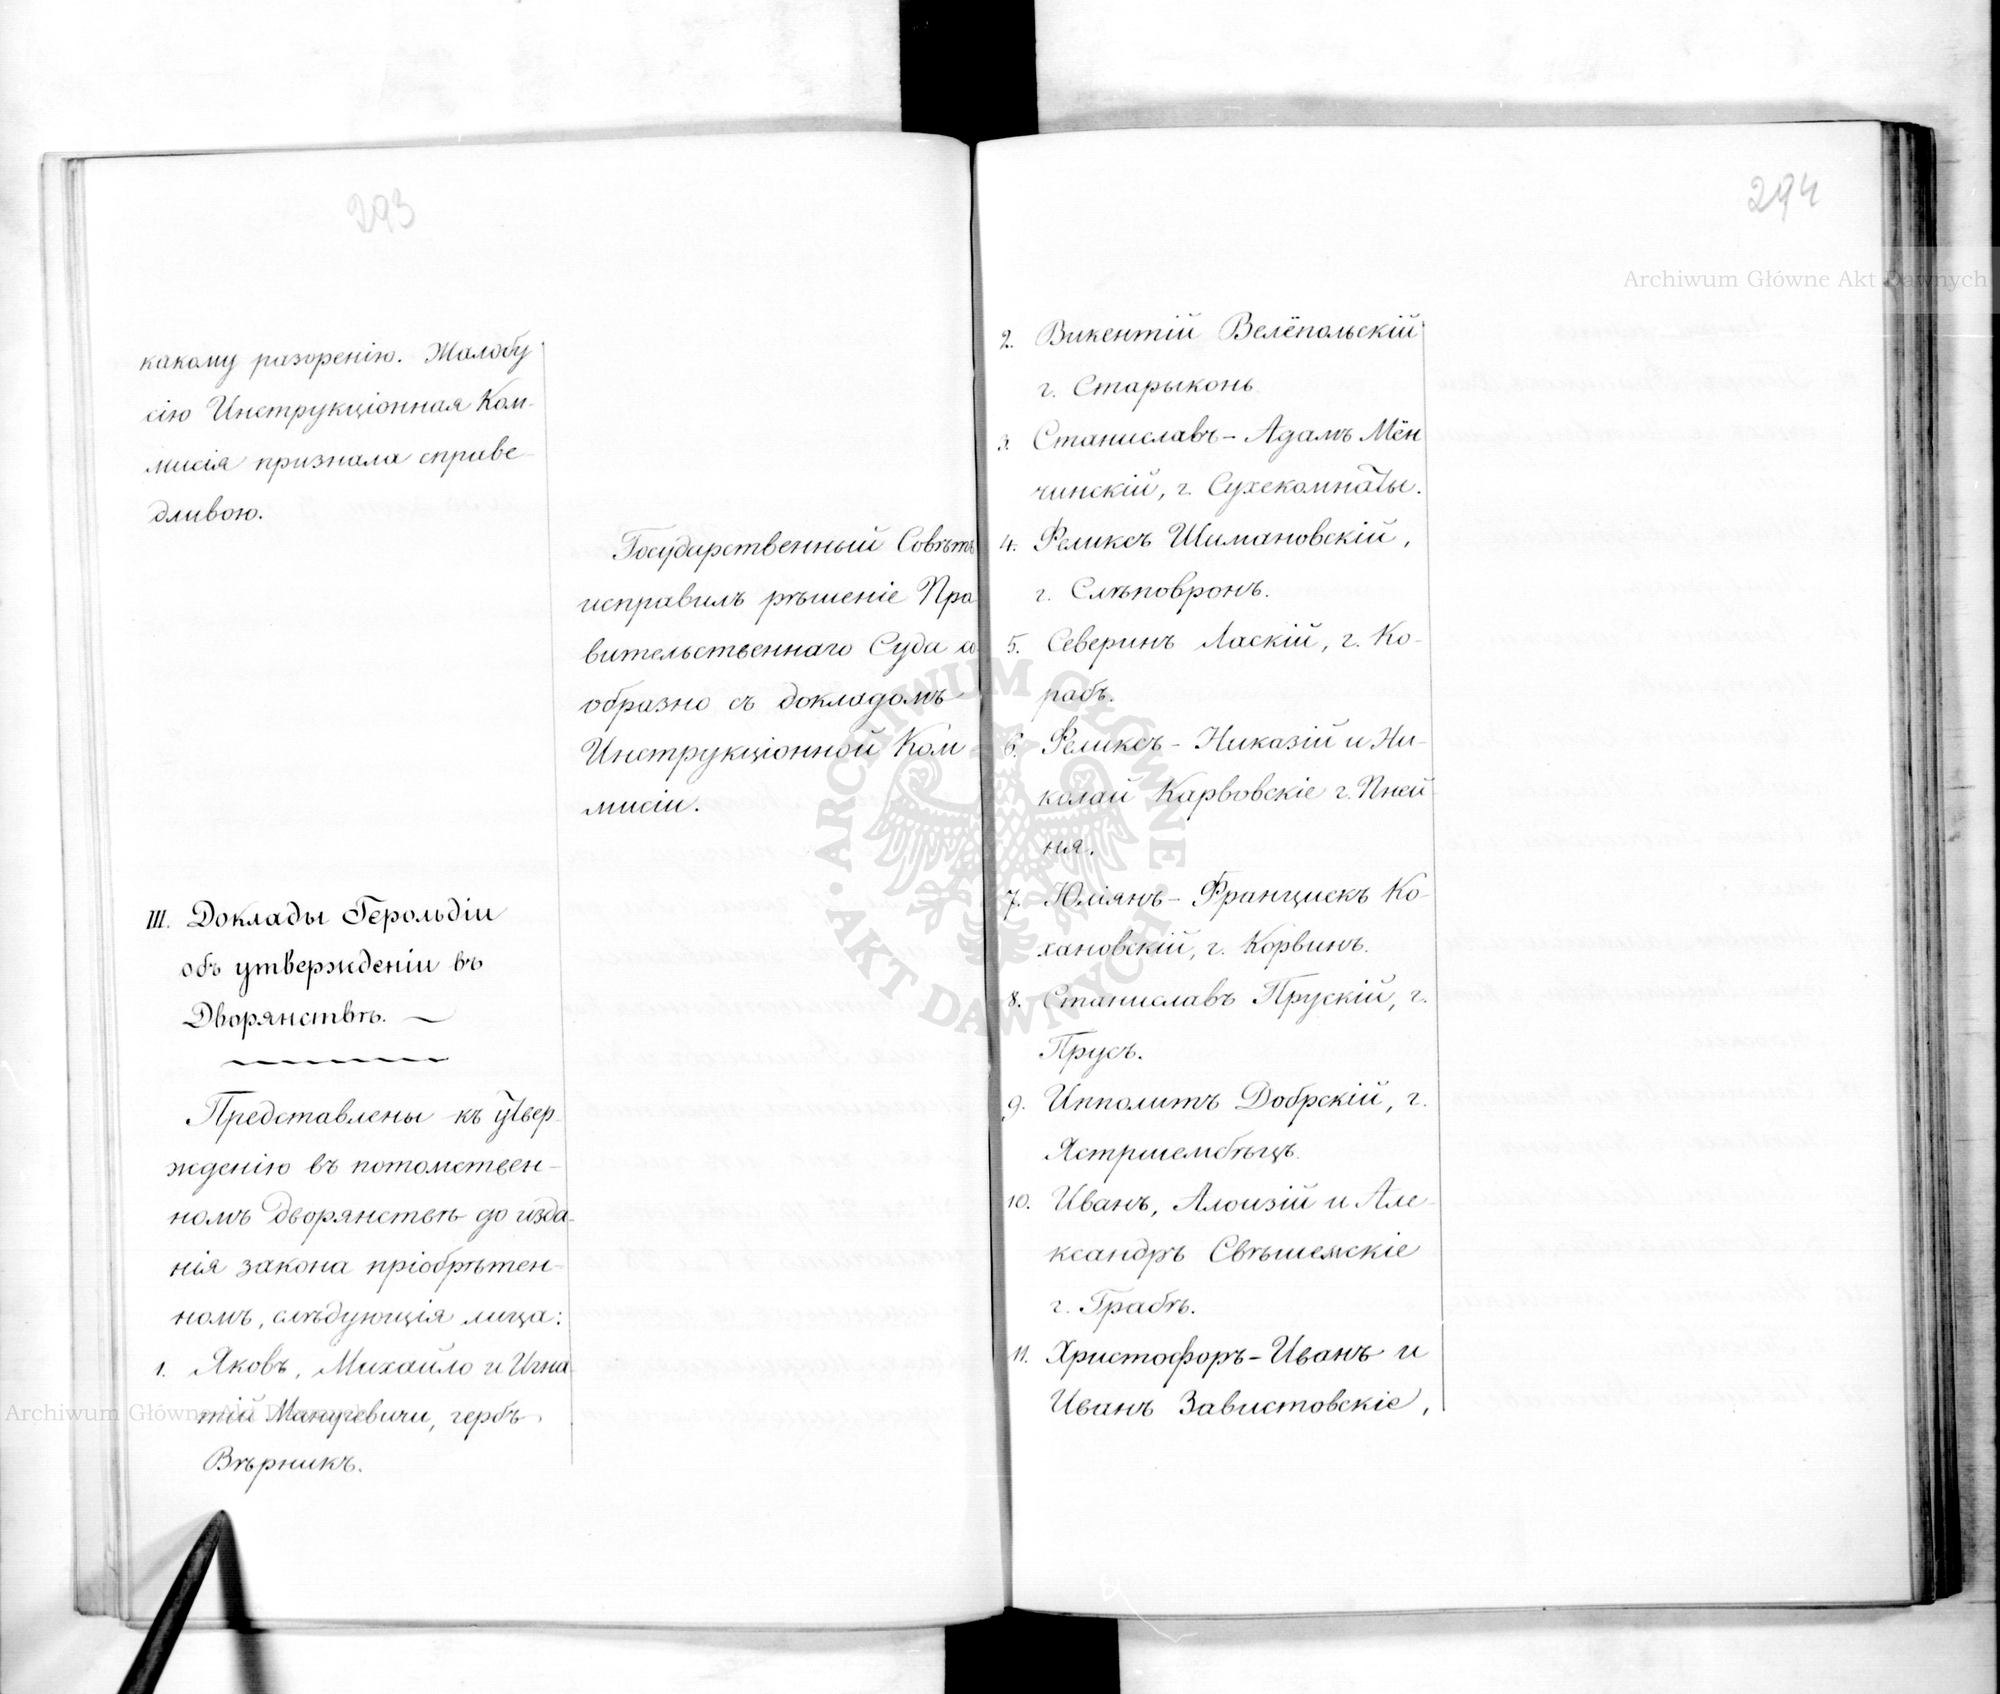 293
какому разоренію. Жалобу
сію Инструкціонная Ком-
мисія признала справе-
дливою.
Государственный Совѣтъ
исправилъ рѣшеніе Пра
вительственнаго Суда со
образно съ докладомъ
Инструкціонной Ком
мисіи.
III. Доклады Герольдіи
объ утвержденіи въ
Дворянствѣ. —
Представлены къ утвер-
жденію въ потомствен-
номъ дворянствѣ до изда-
нія закона пріобрѣтен-
номъ, слѣдующія лица:
1. Яковъ, Михайло и Игна
тій Манугевичи, гербъ
Вѣрникъ.
294
2. Викентій Велёпольскій
г. Старыконь
3. Станиславъ-Адамъ Мён
чинскій, г. Сухекомнаты.
4. Феликсъ Шимановскій,
г. Слѣповронъ.
5. Северинъ Ласкій, г. Ко-
рабъ.
6. Феликсъ-Никазій и Ни-
колай Карвовскіе г. Пней-
ня.
7. Юліянъ-Францискъ Ко-
хановскій, г. Корвинъ.
8. Станиславъ Прускій, г.
Прусъ.
9. Ипполитъ Добрскій, г.
Ястршембѣцъ.
10. Иванъ, Алоизій и Але-
ксандръ Свѣшемскіе
г. Грабѣ.
11. Христофоръ-Иванъ и
Иванъ Завистовскіе,
Archiwum Główne Akt Dawnych
Archiwum Główne Akt Dawnych
ARCHIWUM GŁÓWNE · AKT DAWNYCH ·